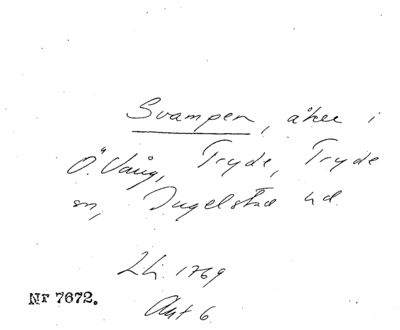 Svampen, åker i
Ö. Vång, Tryde, Tryde
sn, Ingelstad hd.
Lh. 1769
Akt 6
Nr 7672.